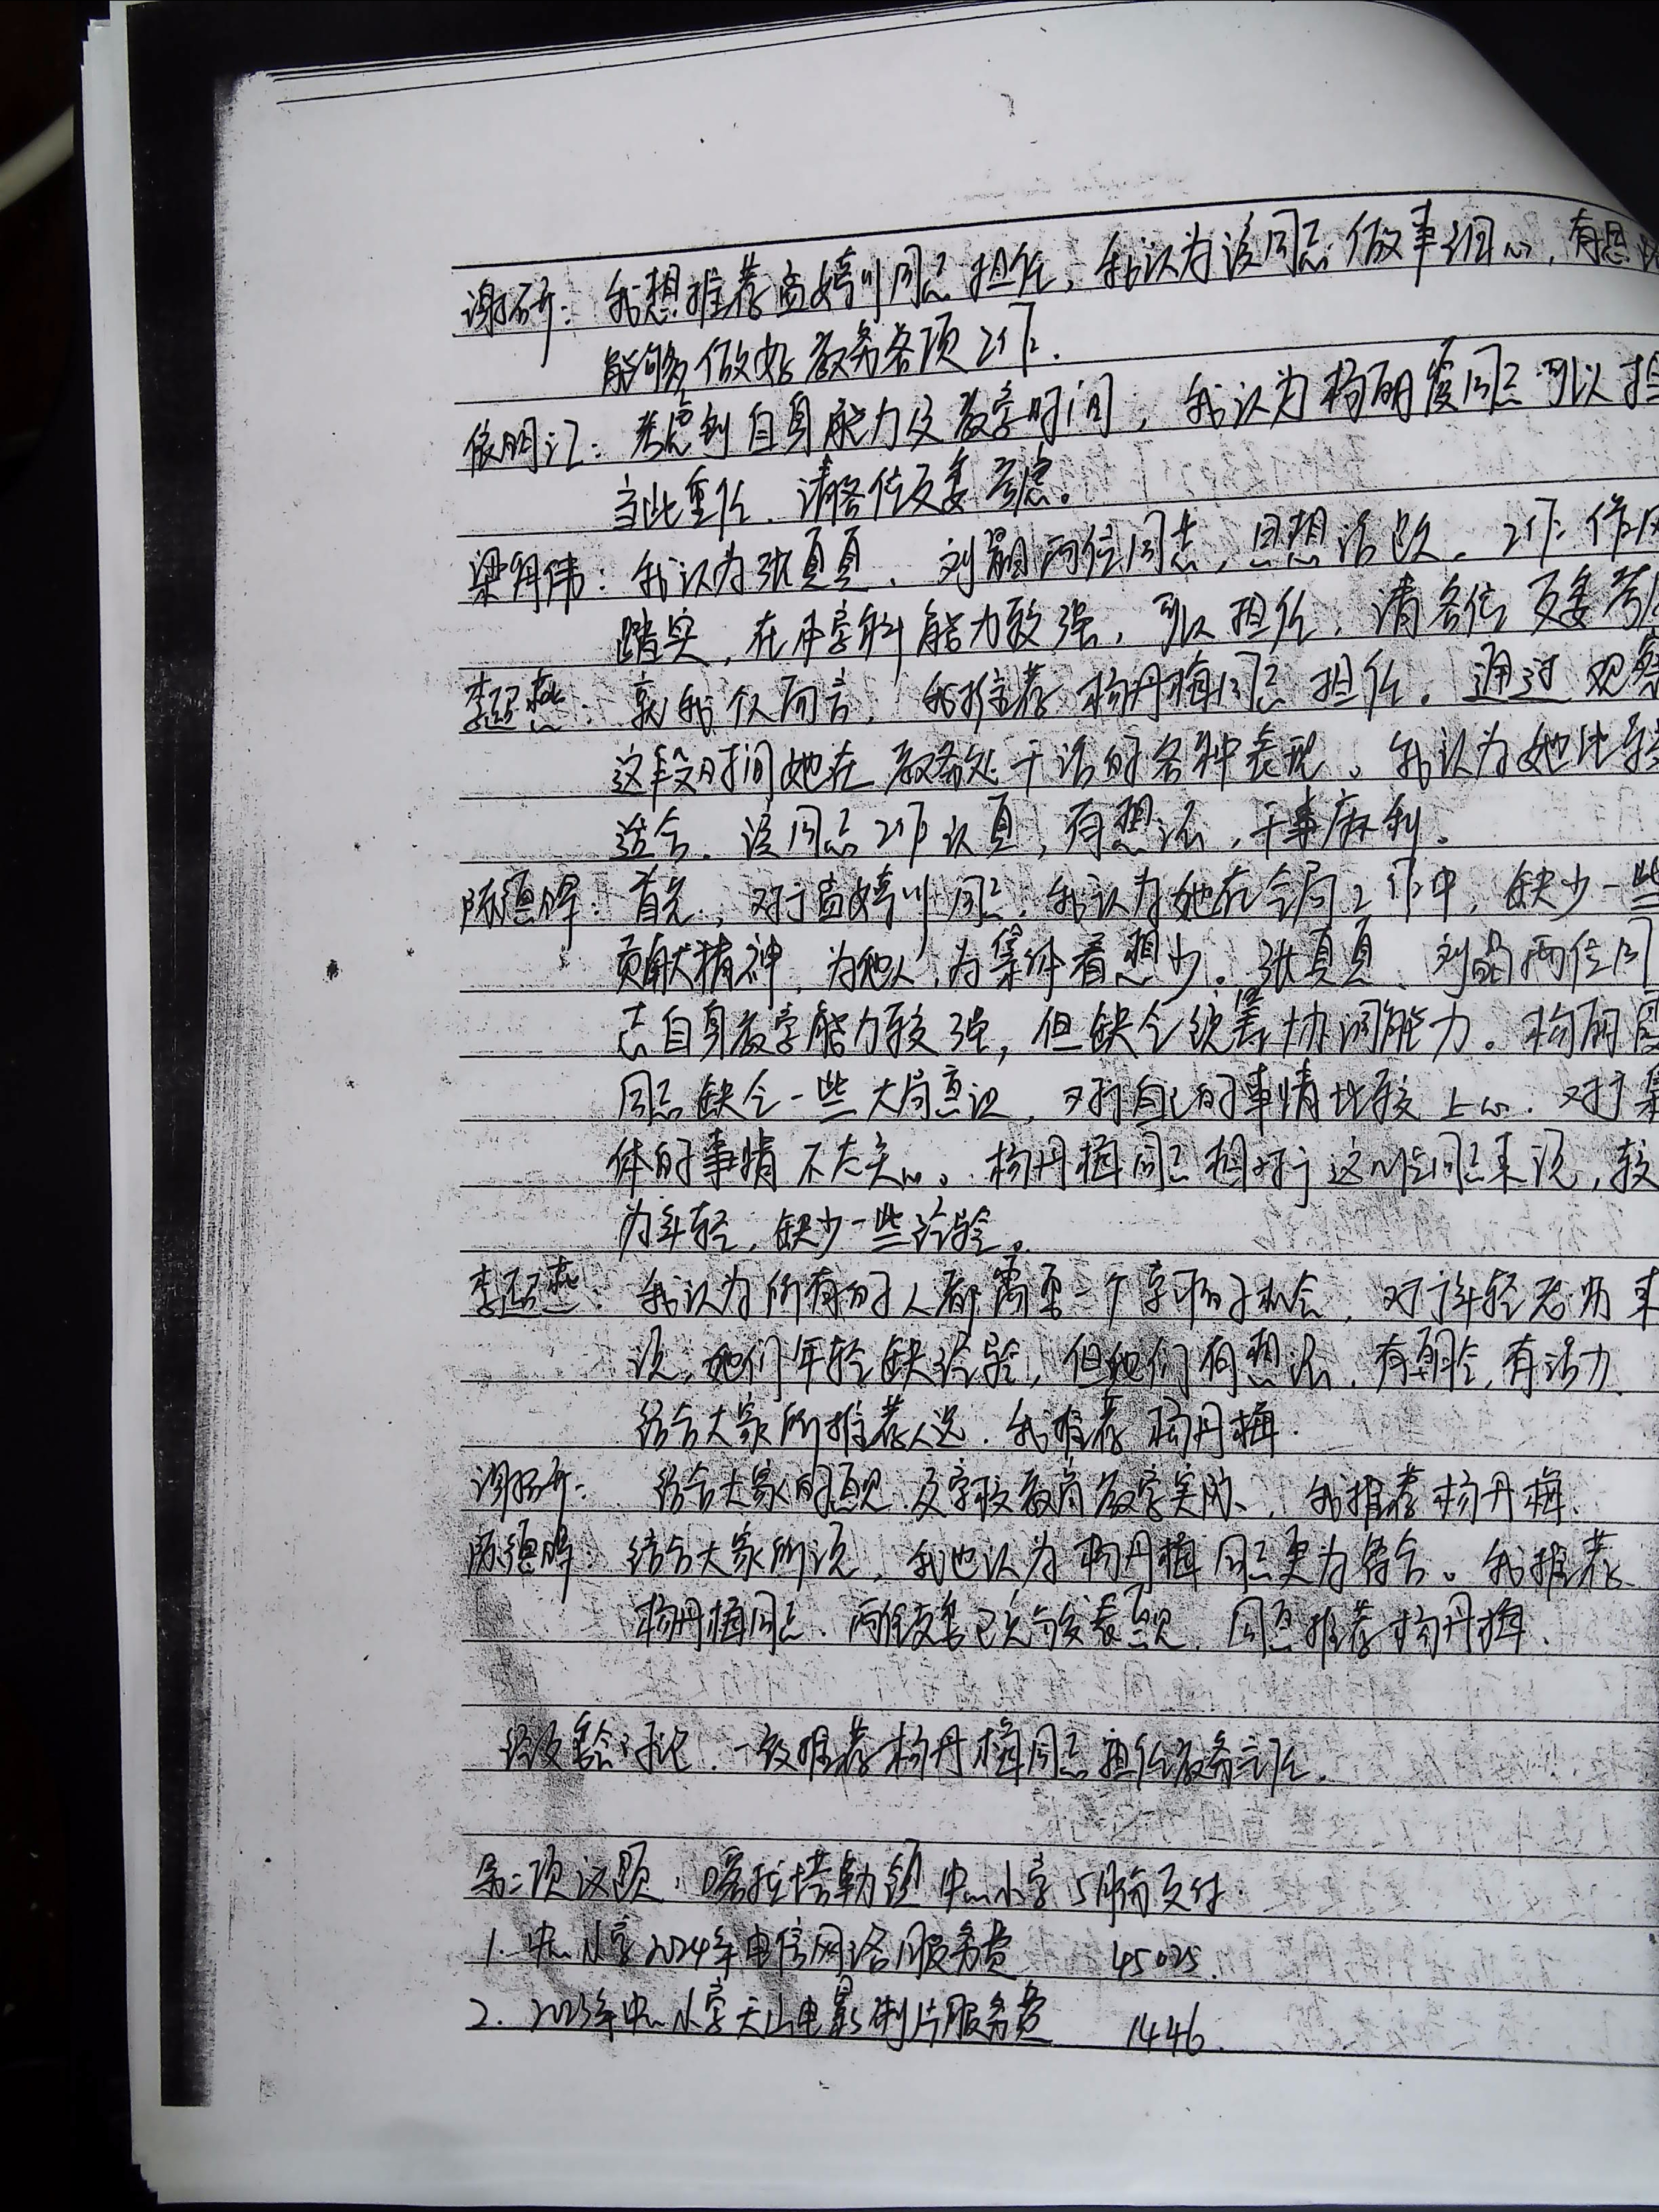 谢研：我想推荐袁婷川同志担任，我认为该同志做事细心，有思
能够做好教务各项工作.
依明江：考虑到自身能力及教学时间，我认为杨丽霞同志可以担
当此重任，请各位支委考虑。
梁明伟：我认为张真真、刘晶两位同志，思想活跃，工作作风
踏实，在本学科能力较强，可以担任，请各位支委考虑
李亚燕：就我个人而言，我推荐杨丹梅同志担任。通过观察
这段时间她在教务处干活的各种表现，我认为她比较
适合，该同志工作认真，有想法，干事麻利。
陈德晖：首先，对于袁婷川同志，我认为她在合同工作中，缺少一些
贡献精神，为他人，为集体着想少。张真真、刘晶两位同
志自身教学能力较强，但缺乏统筹协调能力。杨丽霞
同志缺乏一些大局意识，对于自己的事情比较上心，对于集
体的事情不太关心。杨丹梅同志相对于这几位同志来说，较
为年轻，缺少一些经验。
李亚燕：我认为所有的人都需要一个学习的机会，对于年轻老师来
说，她们年轻缺经验，但她们有想法，有朝气，有活力.
结合大家所推荐人选，我推荐杨丹梅.
谢研：结合大家的意见及学校教育教学实际，我推荐杨丹梅.
陈德晖：结合大家所说，我也认为杨丹梅同志更为符合。我推荐
杨丹梅同志，两位支委已充分发表意见，同意推荐杨丹梅.
经支委会讨论，一致推荐杨丹梅同志担任教务主任.
第二项议题：喀拉塔勒镇中心小学5月份支付.
1.中心小学2024年电信网络服务费 45025.
2.2023年中心小学天山电影制片服务费 1446.